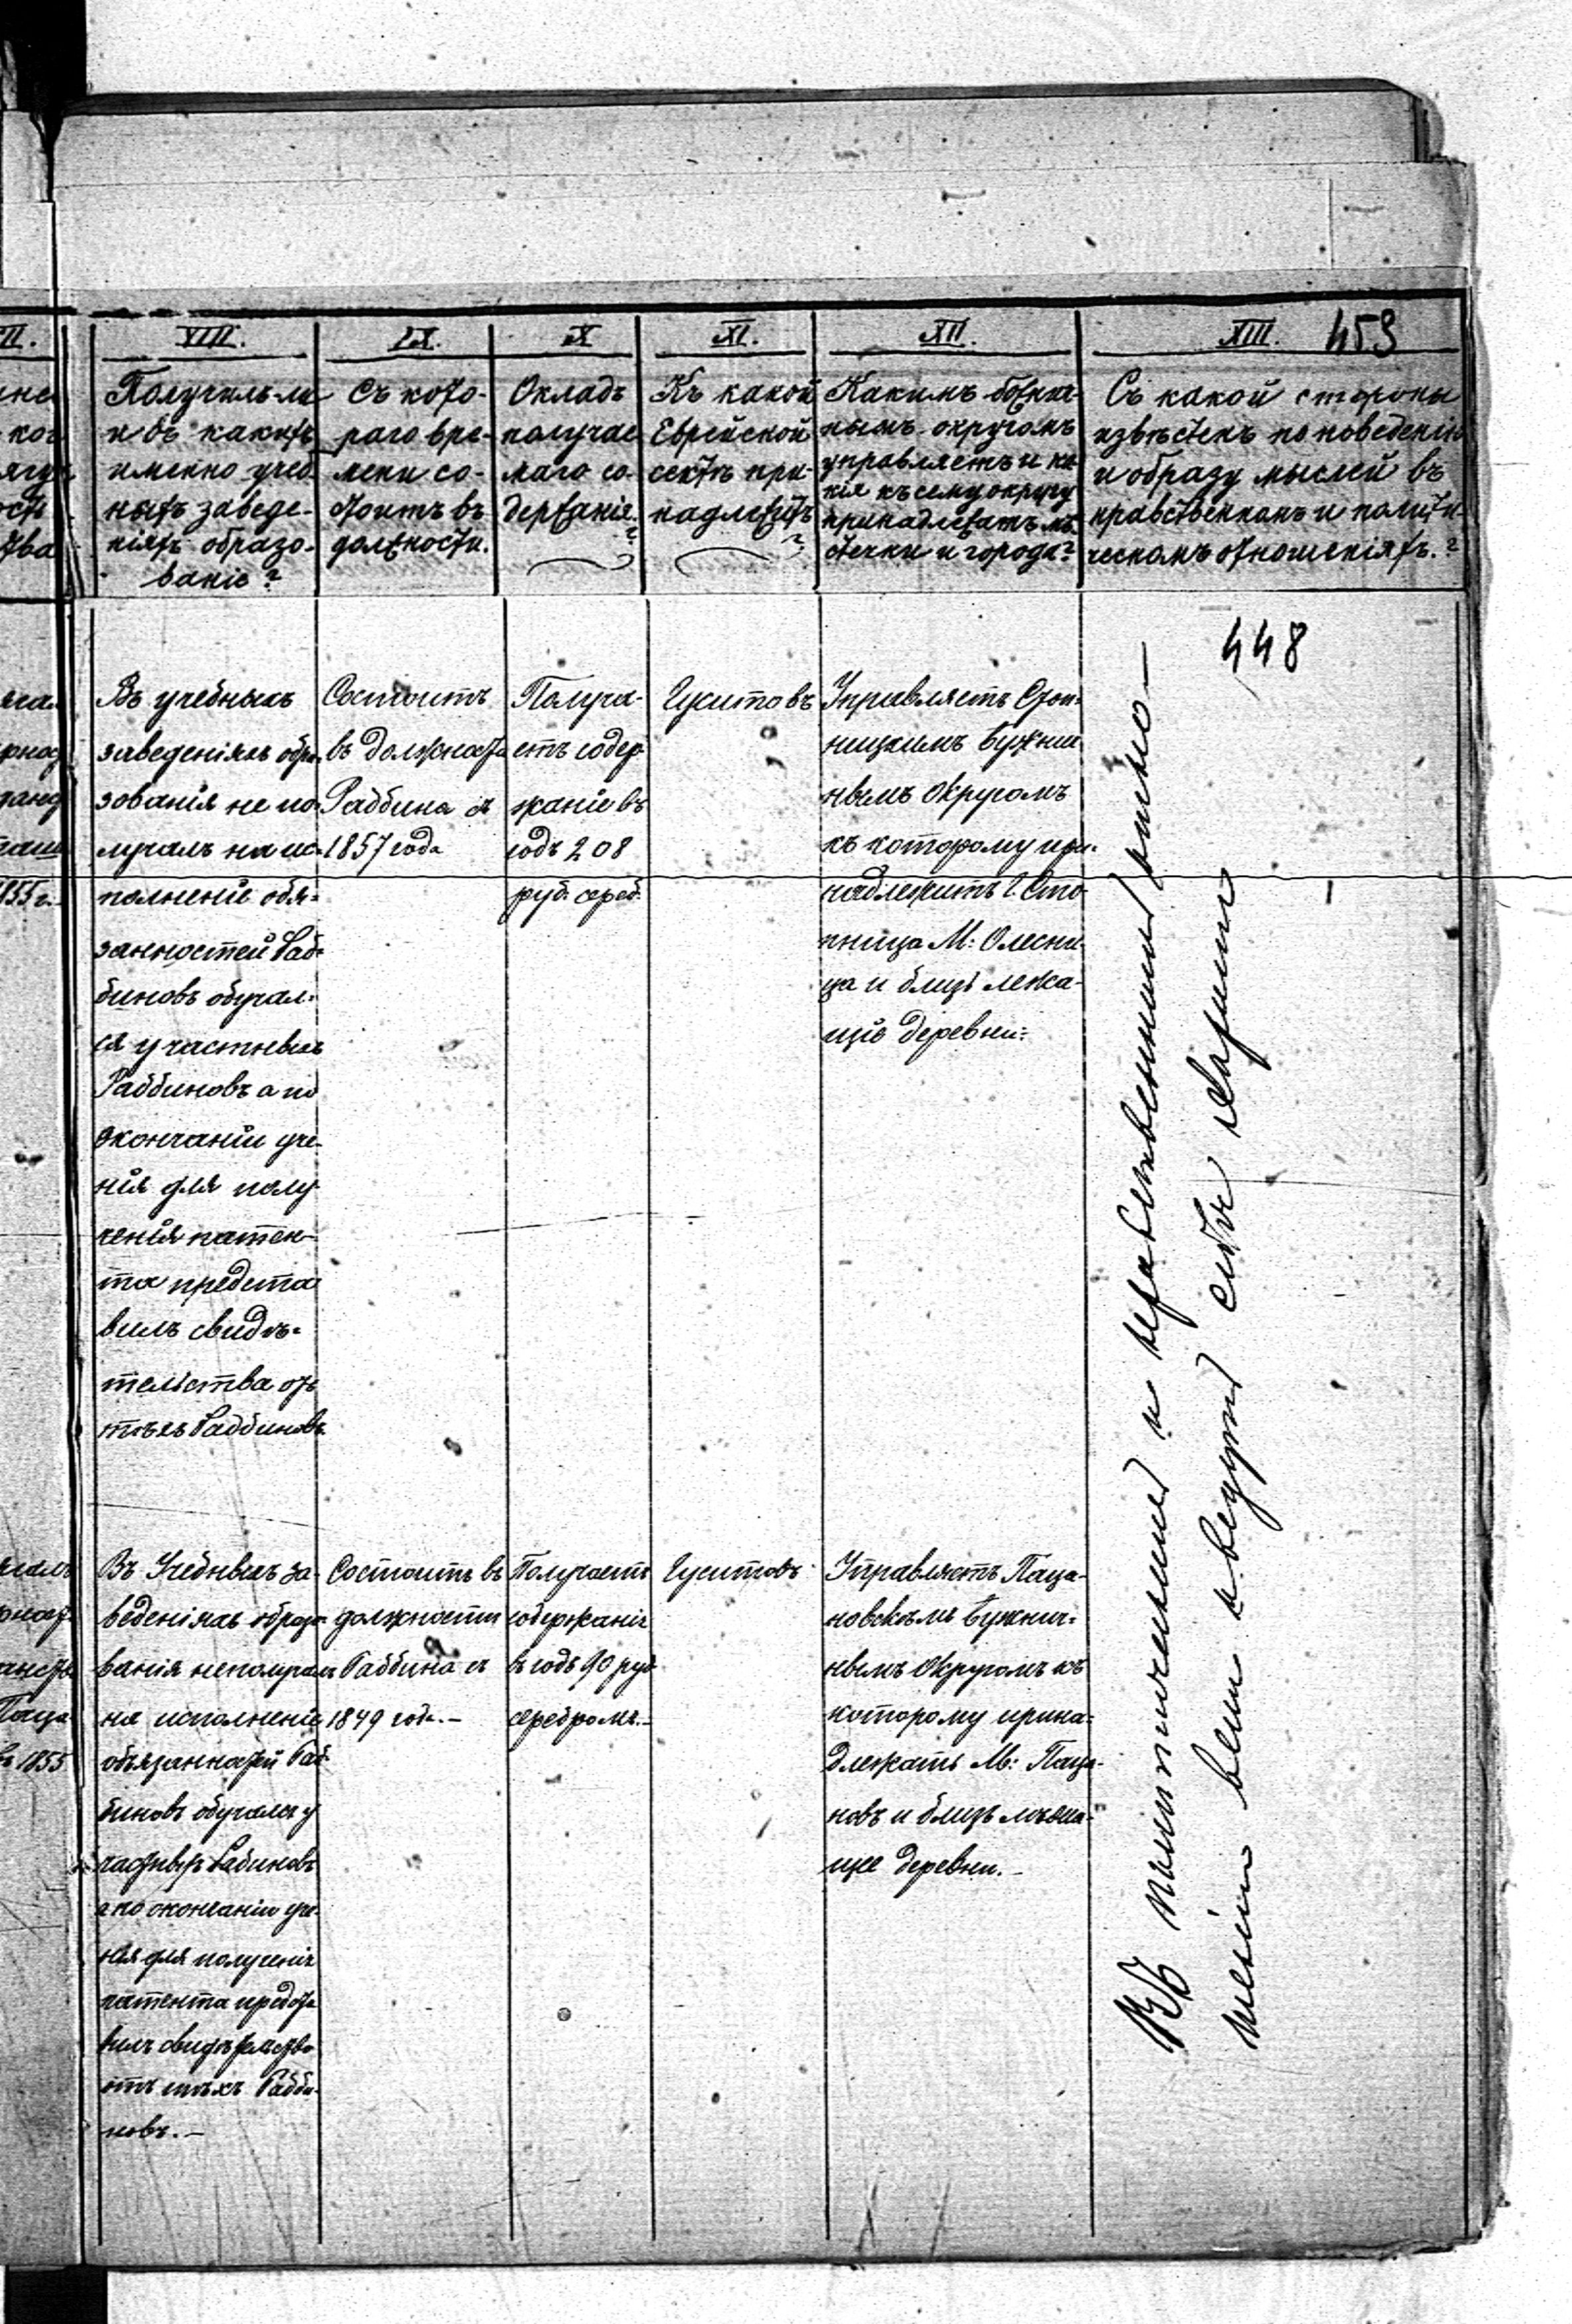 VIII.
Получилъ-ли
и въ какихъ
именно учеб-
ныхъ заведе-
ніяхъ образо-
ваніе?
IX.
Съ кото-
раго вре-
мени со-
стоитъ въ
должности.
X
Окладъ
получае
маго со-
держанія.
?
XI.
Къ какой
Еврейской
сектѣ при-
надлежитъ
?
XII.
Какимъ божнич-
нымъ округомъ
управляетъ и ка-
кія къ сему округу
принадлежатъ мѣ-
стечки и города?
XIII. 459
Съ какой стороны
извѣстенъ по поведенію
и образу мыслей въ
нравственномъ и полити-
ческомъ отношеніяхъ.?
448
Въ учебныхъ
заведеніяхъ обра-
зованія не по-
лучалъ на ис-
полненіе обя-
занностей Раб-
биновъ обучал-
ся у частныхъ
Раббиновъ а по
окончаніи уче-
нія для полу-
ченія патен-
та предста
вилъ свидѣ-
тельства отъ
тѣхъ Раббиновъ.
Состоитъ
въ должности
Раббина съ
1857 года
Получа-
етъ содер
жаніе въ
годъ 208
руб. сереб.
Гуситовъ
Управляетъ Стоп-
ницкимъ Бужнич
нымъ Округомъ
къ которому при-
надлежитъ Г. Сто
пница М: Олесни-
ца и близъ лежа-
щіе деревни:
Въ Учебныхъ за-
веденіяхъ образо
ванія неполучалъ
на исполненіе
объязанностей Раб-
биновъ обучался у
частныхъ Рабиновъ
а по окончаніи уче-
нія для полученія
патента предста
вилъ свидѣтельство
отъ тѣхъ Рабби-
новъ.-
Состоитъ въ
должности
Раббина съ
1849 года.-
Получаетъ
содержаніе
въ годъ 90 руб
серебромъ.-
Гуситовъ
Управляетъ Паца-
новскимъ Бужнич-
нымъ Округомъ къ
которому прина-
длежатъ М: Паца-
новъ и близъ лѣжа-
щее деревни.-
Въ политическомъ и нравственномъ отно-
шеніи вели и ведутъ себя хорошо